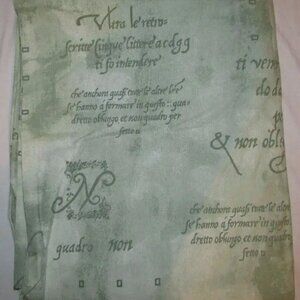 Vista le retro=
scritte cinque littere a c d g g
ti fo intendere
che anchora quasi tutte le altre lre
se hanno a formare in questo :: qua=
dretto oblungo et non quadro per
fetto
ti ven
do do
& non obl
N
quadro non
che anchora quasi tutte le altre
se hanno a formare in quest
dretto oblungo et non quadro
fetto